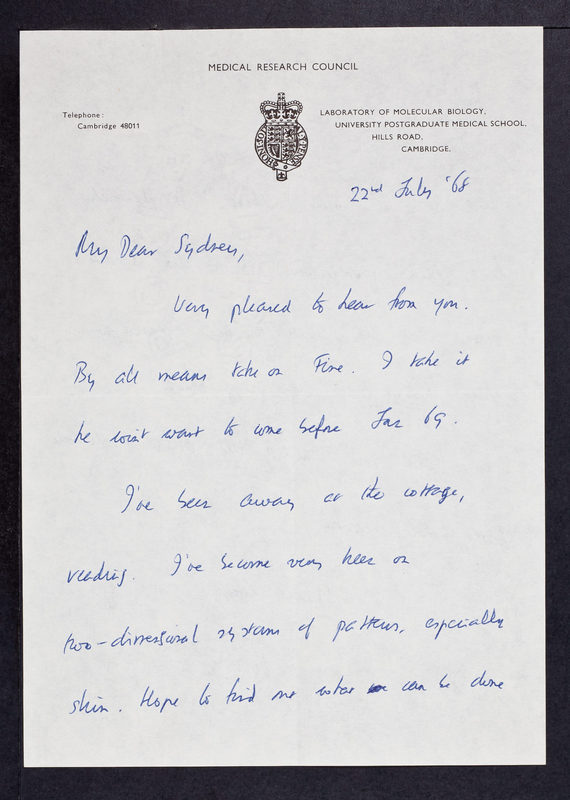 MEDICAL RESEARCH COUNCIL
Telephone:
Cambridge 48011
LABORATORY OF MOLECULAR BIOLOGY,
UNIVERSITY POSTGRADUATE MEDICAL SCHOOL,
HILLS ROAD,
CAMBRIDGE.
22nd July '68
My Dear Sydney,
Very pleased to hear from you.
By all means take on Fine. I take it
he won't want to come before Jan 69.
I've been away at the cottage,
reading. I've become very keen on
two-dimensional systems of patterns, especially
skin. Hope to find out what can be done